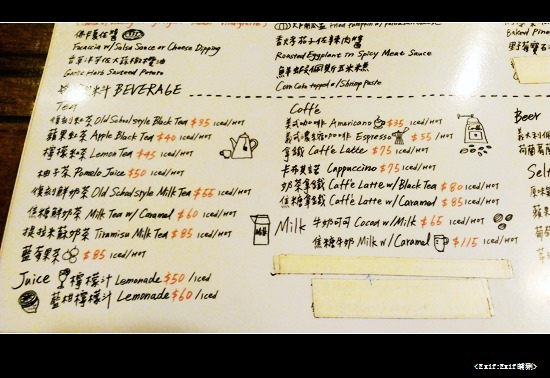 佛卡夏佐醬
Focaccia w/ Salsa Sauce or Cheese Dipping
Garlic Herb Sauteed Potato
Roasted Eggplant in Spicy Meat Sauce
Corn Cake topped w/ Shrimp Paste
Baked Pine
飲料 BEVERAGE
Tea
復刻紅茶 Old School style Black Tea $35 iced/HOT
蘋果紅茶 Apple Black Tea $40 iced/HOT
檸檬紅茶 Lemon Tea $45 iced/HOT
柚子茶 Pomelo Juice $50 iced/HOT
復刻鮮奶茶 Old School style Milk Tea $55 iced/HOT
焦糖鮮奶茶 Milk Tea w/ Caramel $60 iced/HOT
提拉米蘇奶茶 Tiramisu Milk Tea $85 iced/HOT
藍莓果茶 $85 iced/HOT
Juice 檸檬汁 Lemonade $50 /iced
藍柑檸檬汁 Lemonade $60 /iced
Caffé
美式咖啡 Americano $35 iced/HOT
義式濃縮咖啡 Espresso $55 /HOT
拿鐵 Caffé Latte $75 iced/HOT
卡布其諾 Cappuccino $75 iced/HOT
奶茶拿鐵 Caffé Latte w/ Black Tea $80 iced/HOT
焦糖拿鐵 Caffé Latte w/ Caramel $85 iced/HOT
Milk 牛奶可可 Cocoa w/ Milk $65 iced/HOT
焦糖牛奶 Milk w/ Caramel $115 iced/HOT
Beer